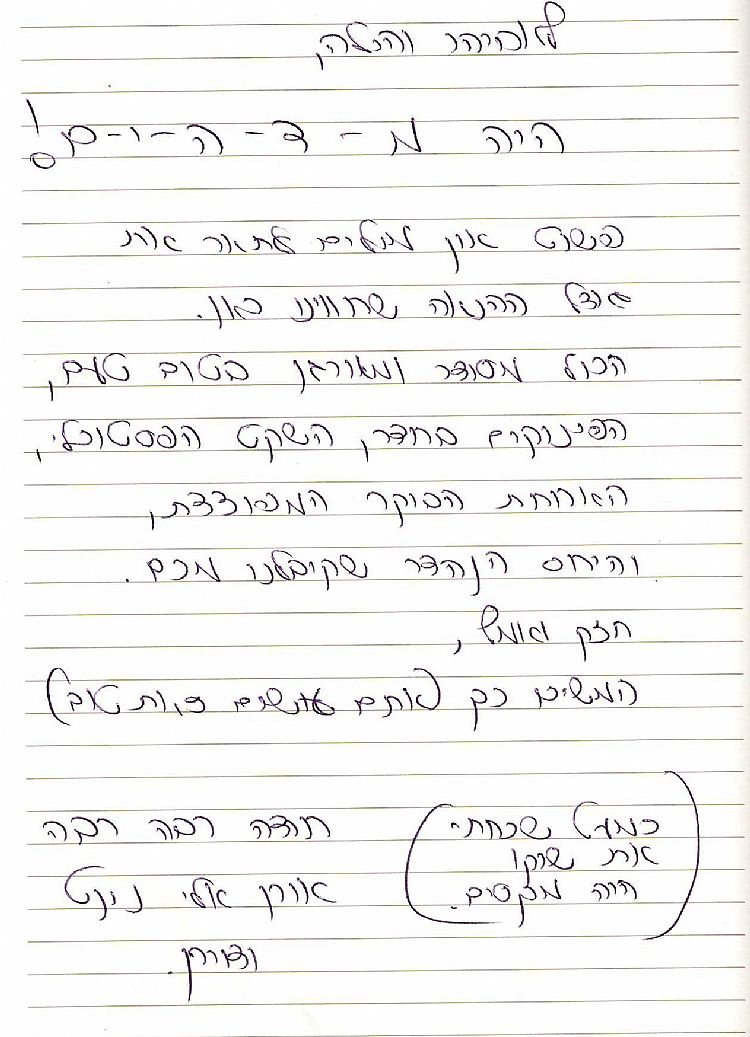 והילה,
היה מ-ד-ה-י-ם!
פשוט אין מילים לתאר את
גודל ההנאה שחווינו כאן.
הכול מסודר ומאורגן בטוב טעם,
הפינוקים בחדר, השקט הפסטורלי,
הארוחת הבוקר המפוצצת,
והיחס הנהדר שקיבלנו מכם.
חזק ואמץ,
המשיכו כך (אתם עושים טוב)
(כמעט שכחתי
את שוקו
היה מקסים.)
תודה רבה רבה
אורן אלי